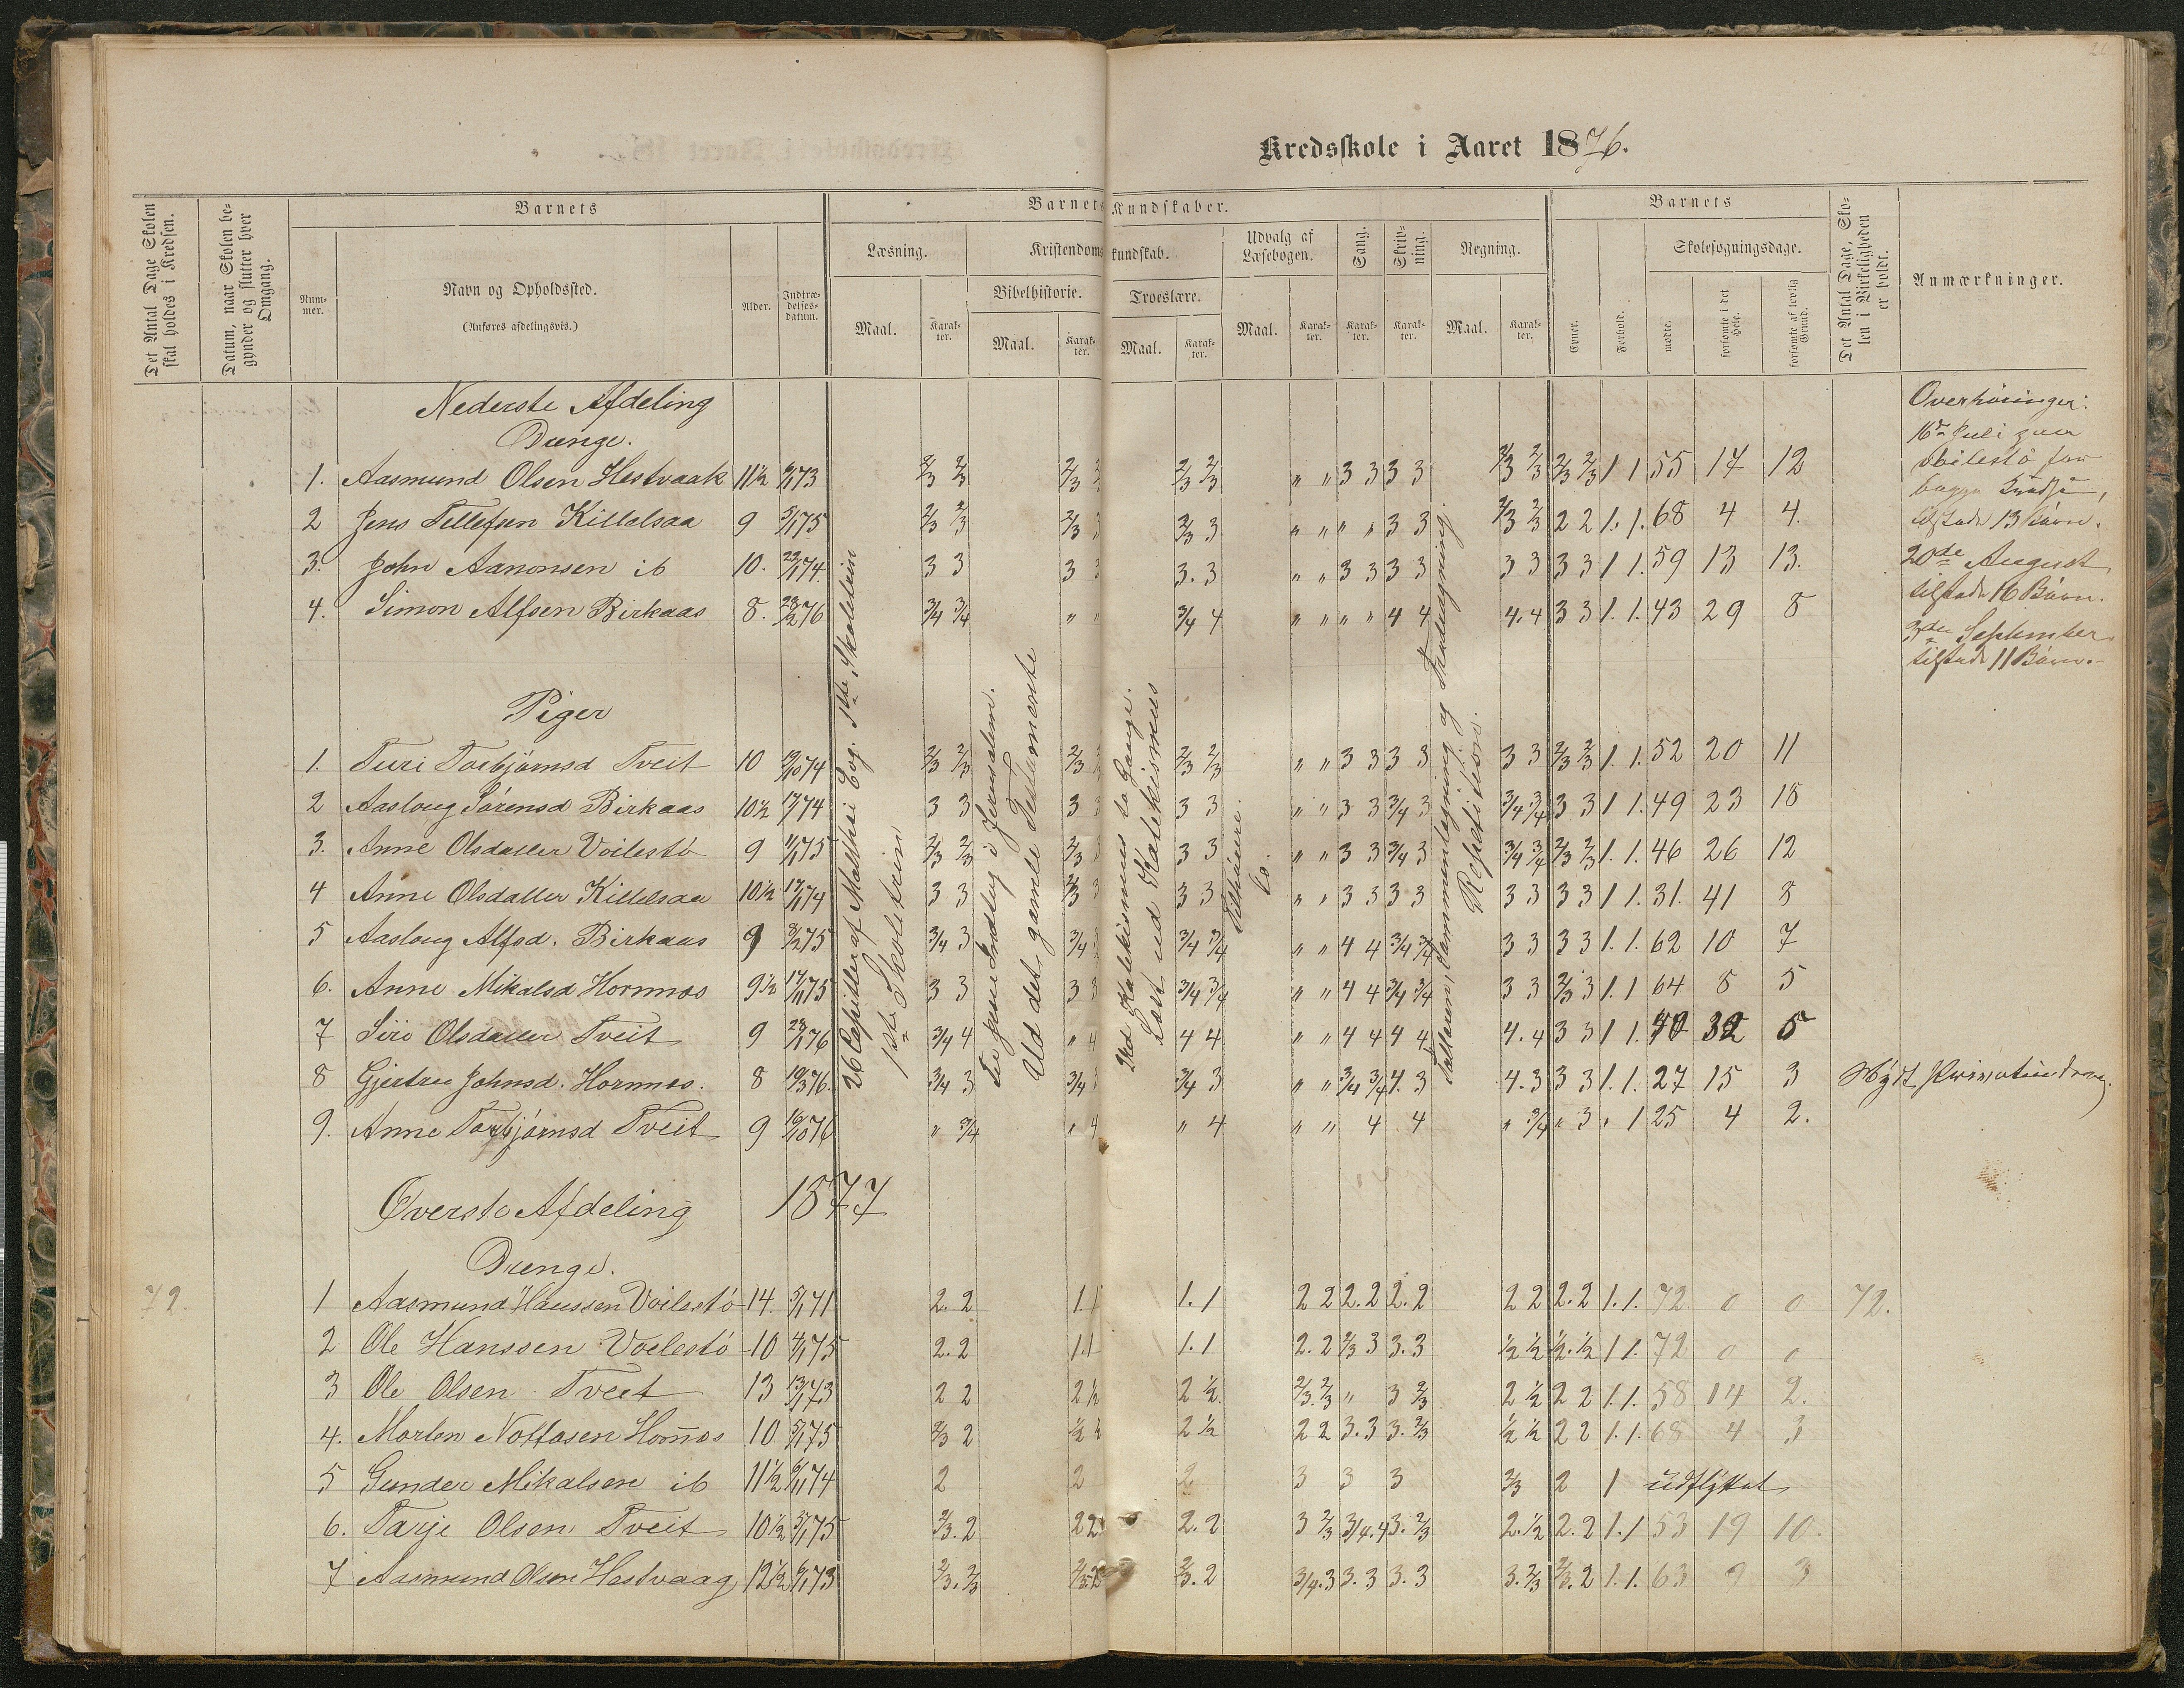 Kredsskole i Aaret 1876.
Det Antal Dage Skolen skal holdes i Kredsen.
Datum, naar Skolen begynder og slutter hver Omgang.
Barnets
Nummer.
Navn og Opholdssted.
(Anføres afdelingsvis.)
Alder.
Indtrædelsesdatum.
Barnets Kundskaber.
Læsning.
Maal.
Karakter.
Kristendomskundskab.
Bibelhistorie.
Maal.
Karakter.
Troeslære.
Maal.
Karakter.
Udvalg af Læsebogen.
Maal.
Karakter.
Sang.
Karakter.
Skrivning.
Karakter.
Regning.
Maal.
Karakter.
Barnets
Evner.
Forhold.
Skolesøgningsdage.
mødte.
forsømte i det Hele.
forsømte af lovlig Grund.
Det Antal Dage, Skolen i Virkeligheden er holdt.
Anmærkninger.
Nederste Afdeling
Drenge.
1. Aasmund Olsen Hestvaak 11½ 2/3 2/3 2/3 2/3 2/3 " " 3 3 3 3 2/3 2/3 2/3 2/3 1 1 55 17 12
2 Jens Tellefsen Killelsaa 9 5/1 75 2/3 2/3 2/3 3 2/3 3 " " " " 3 3 2/3 2/3 2 2 1. 1. 68 4 4.
3. John Aanonsen ib 10. 22/1 74. 3 3 3 3 3. 3 " " 3 3 3 3 3 3 3 3 1 1. 59 13 13.
4. Simon Alfsen Birkaas 8. 23/2 76 3/4 3/4 " " 3/4 4 " " " " 4 4 4. 4 3 3 1. 1. 43 29 8
Piger
1. Turi Torbjørnsd Tveit 10 19/10 74 2/3 2/3 2/3 2/3 2/3 " " 3 3 3 3 3 3 2/3 2/3 1. 1. 52 20 11
2 Aasloug Sørensd Birkaas 10½ 3 3 3 3 3 3 " " 3 3 3/4 3 3/4 3/4 3 3 1 1. 49 23 18
3. Anne Olsdatter Voilestø 9 11/1 75 2/3 2/3 2/3 3 3 3 " " 3 3 3/4 3 3/4 3/4 2/3 2/3 1. 1. 46 26 12
4 Anne Olsdatter Killelsaa 10½ 3 3 2/3 3 3 3 " " 3 3 3 3 3 3 3 3 1 1. 31. 41 8
5 Aasloug Alfsd. Birkaas 9 8/2 75 3/4 3 3/4 3/4 3/4 " " 4 4 3/4 3/4 3 3 3 3 1. 1. 62 10 7
6. Anne Mikalsd Hornnes 9½ 3 3 3 3 3/4 3/4 " " 4 4 3/4 3/4 3 3 2/3 3 1. 1 64 8 5
7 Siri Olsdatter Tveit 9 3/4 4 " 4 4 4 " " 4 4 4 4 4. 4 3 3 1 1. 40 32 5
8 Gjertru Johnsd. Hornnes. 8 3/4 3 3/4 3 3/4 3 " " 3/4 3/4 4. 3 4. 3 3 3 1. 1. 27 15 3
9. Anne Torbjørnsd Tveit 9 16/10 76 " 3/4 " 4 " 4 " " 4 4 " 3/4 " 3 " 1 25 4 2.
26 Capitler af Matthæi Evg. 1ste Skoletrin
1ste Skoletrin
Til Jesu Indtog i Jerusalem.
Ud det gamle Testamente
Ved Katekismus to Gange.
Læst ud Katekismus
Tilhørere.
Do.
Tallæren, Sammenlægning og Fradragning.
Repetition.
Overhøringer:
16de Juli paa
Voilestø for
begge Kredse,
tilstede 13 Børn.
20de August
tilstede 16 Børn.
3die September
tilstede 11 Børn.
Nydt Privatundervg.
Øverste Afdeling 1877
Drenge.
72. 1 Aasmund Hanssen Voilestø 14. 5/1 71 2. 2 1. 1 1. 1 2 2 2. 2 2. 2 2 2 2. 2 1. 1. 72 0 0 72.
2 Ole Hanssen Voilestø 10 4/1 75 2. 2 1 1 1. 1 2. 2 2/3 3 3. 3 ½ ½ ½. ½ 1 1. 72 0 0
3 Ole Olsen Tveit 13 13/1 73 2 2 2 ½ 2 ½. 2/3. 2/3 " 3 2/3 2 ½ 2 2 1. 1. 58 14 2.
4. Morten Nottosen Hornnes 10 5/1 75 2/3 2 ½ ½ 2 ½ 2 2 3. 3 3. 2/3 ½ ½ 2 2 1. 1. 68 4 3
5 Gunder Mikalsen ib 11½ 6/11 74 2 2 2 3 3 3 2/3 2 1 udflyttet
6. Tarje Olsen Tveit 10½ 2/3. 2 2 2 2. 2 3 2/3 3/4. 4 3. 2/3 2. ½ 2. 2 1. 1 53 19 10.
7 Aasmund Olsen Hestvaag 12½ 2/3. 2/3 2/3. 2 2/3. 2 3/4. 3 3. 3 3. 3 3. 2/3 2/3. 2 1. 1. 63 9 3